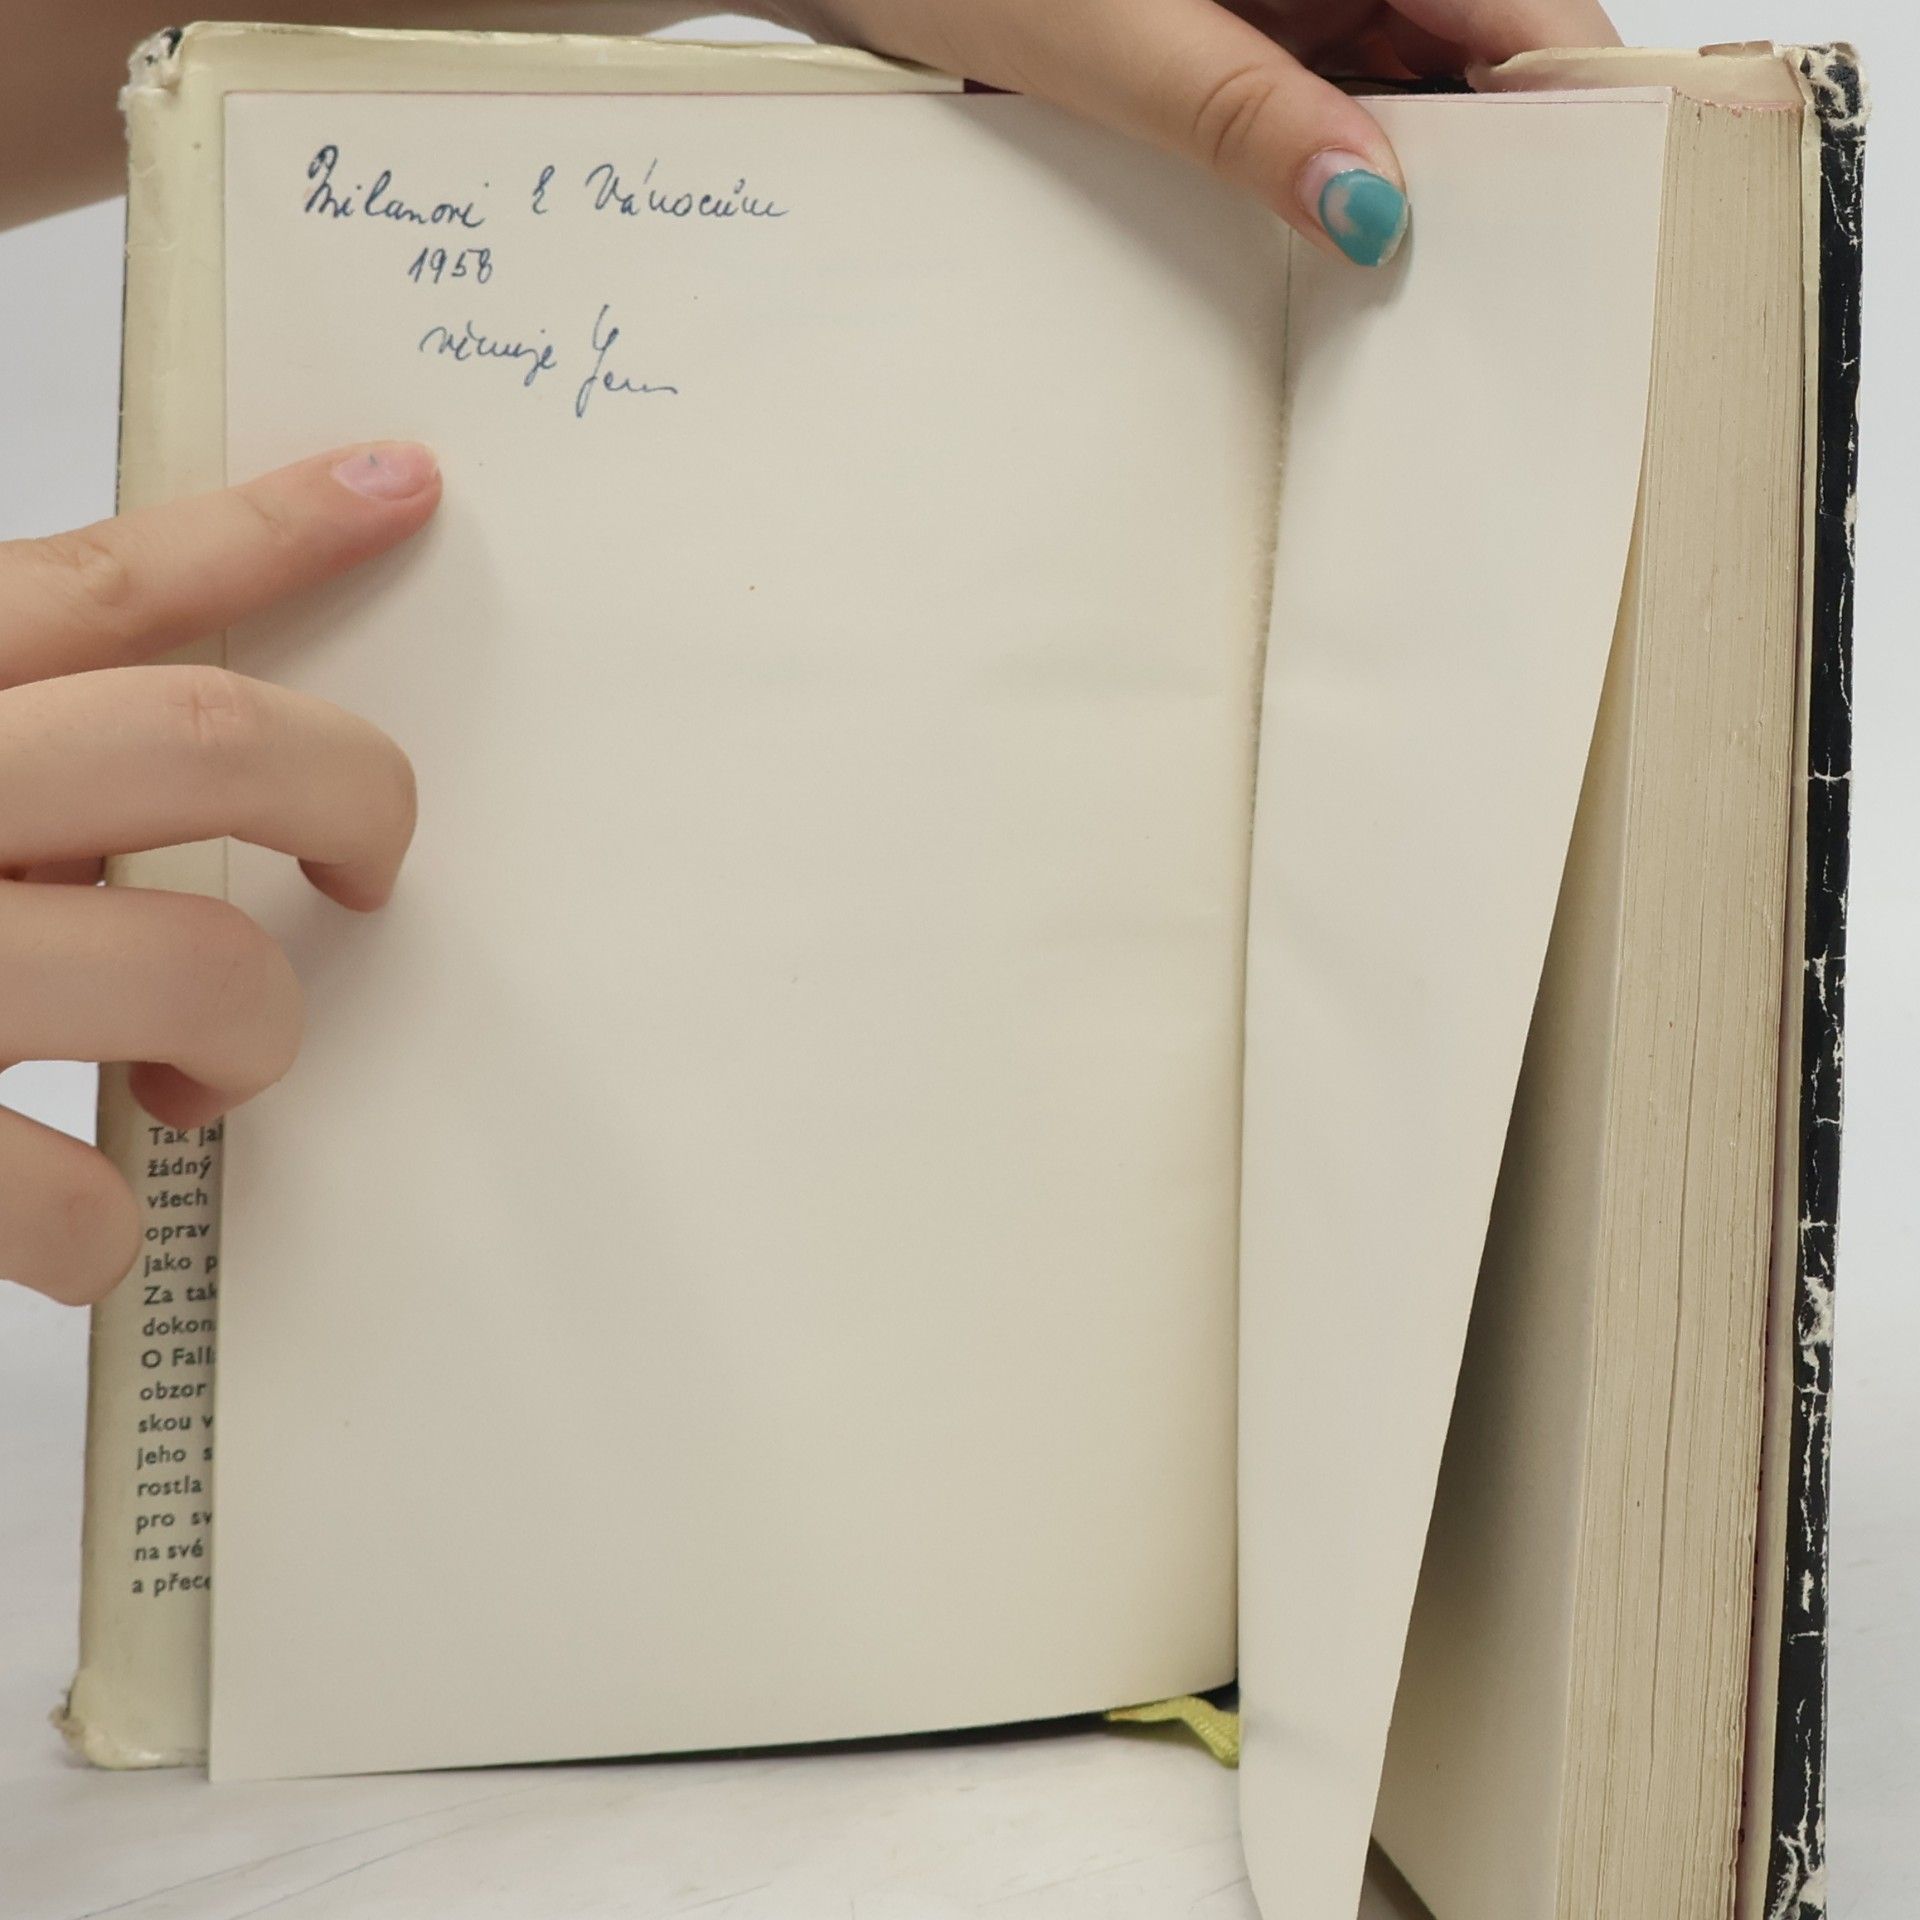 Milanovi k Vánocům
1958
věnuje
Tak jak
žádný
všech
oprav
jako p
Za tak
dokon
O Falls
obzor
skou v
jeho s
rostla
pro sv
na své
a přece